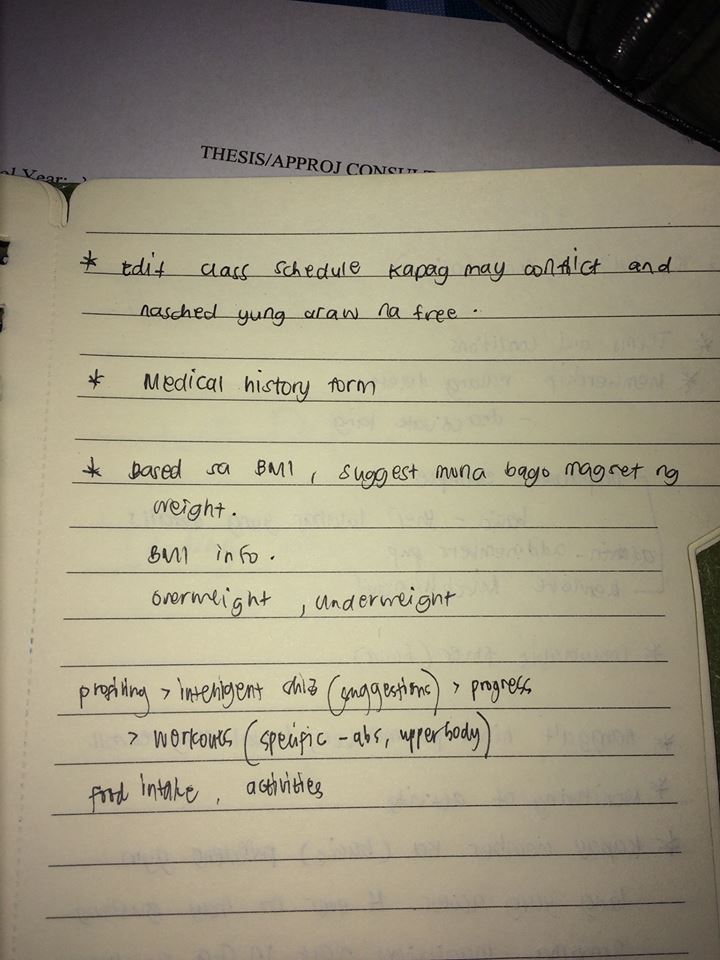 THESIS/APPROJ
Year:
* Edit class schedule kapag may conflict and
nasched yung araw na free.
* Medical history form
* Based sa BMI, suggest muna bago magset ng
weight.
BMI info.
overweight, underweight
profiling > intelligent (suggestions) > progress
> workouts (specific - abs, upperbody)
food intake, activities